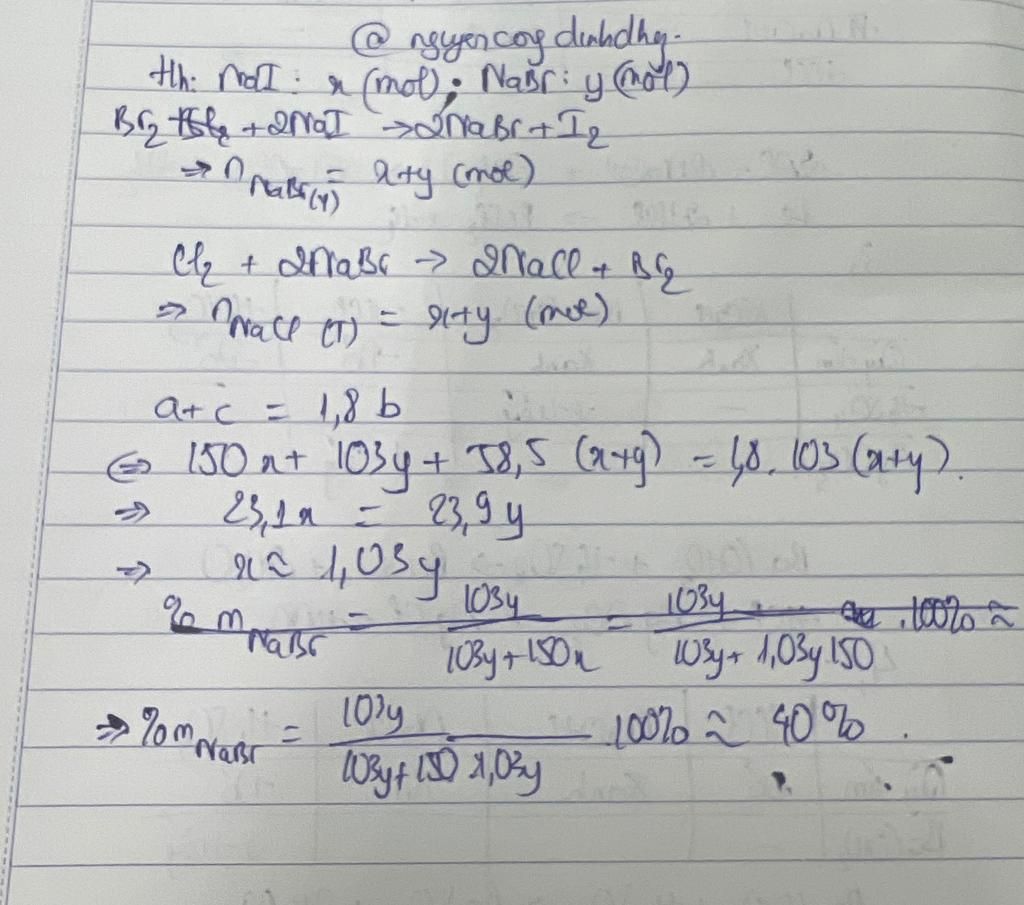 @ nguyencongdinhdhy.
Hh: NaI: x (mol); NaBr: y (mol)
Br2 + 2NaI → 2NaBr + I2
⇒ nNaBr(Y) = x+y (mol)
Cl2 + 2NaBr → 2NaCl + Br2
⇒ nNaCl (T) = x+y (mol)
a+c = 1,8 b
⇔ 150x + 103y + 58,5 (x+y) = 1,8. 103 (x+y).
⇒ 23,1x = 23,9y
⇒ x ≈ 1,03y
% mNaBr = 103y / 103y + 150x = 103y / 103y + 1,03y.150 .100% ≈
⇒ %mNaBr = 103y / 103y + 150 x1,03y .100% ≈ 40%.